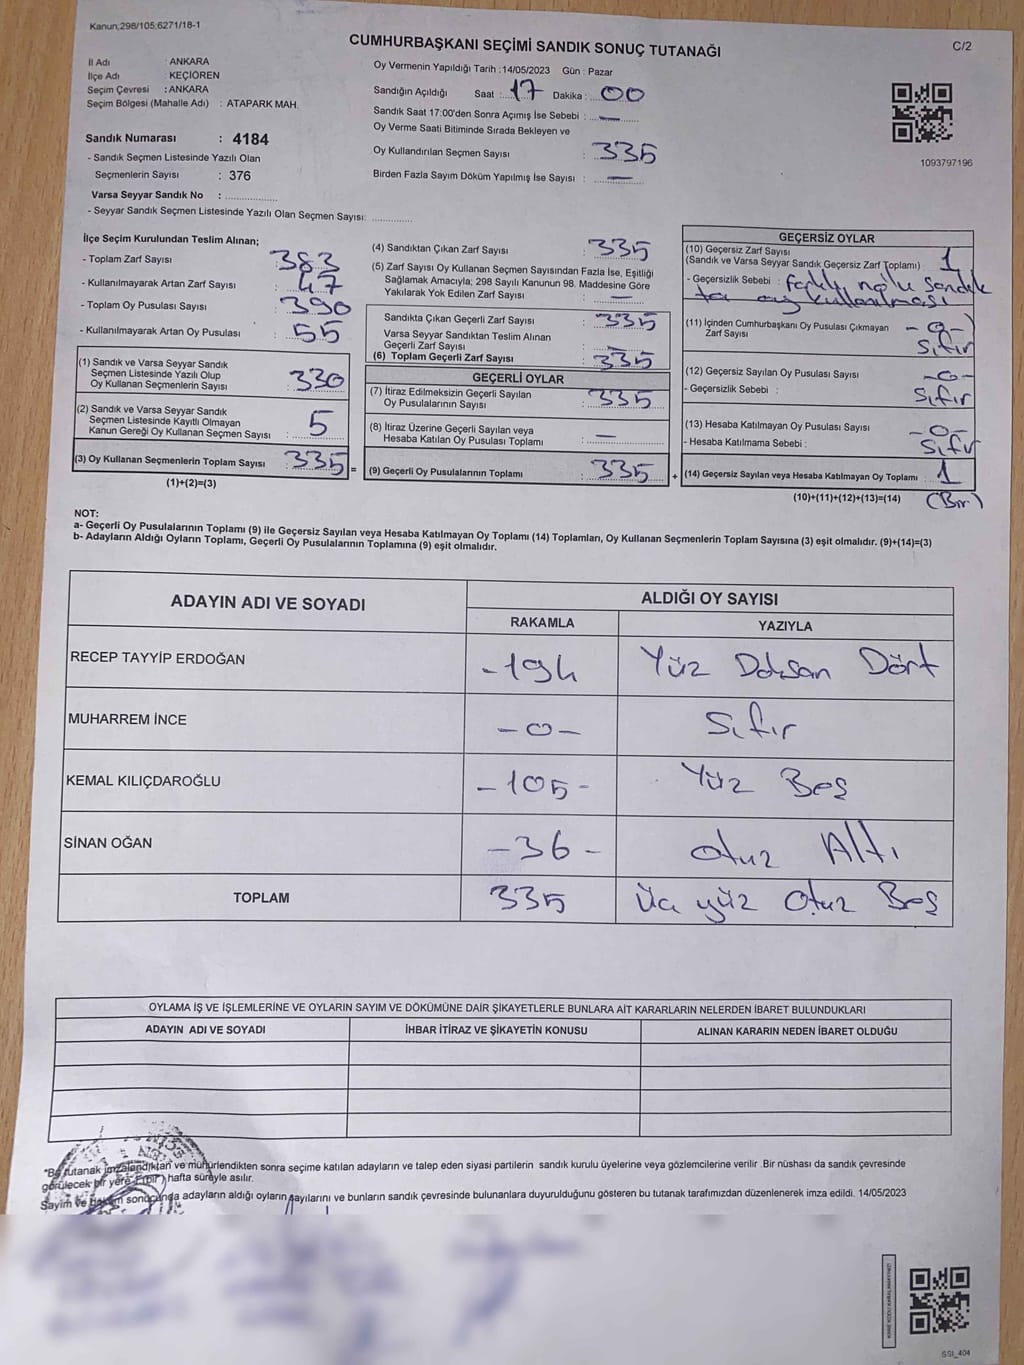 Kanun;298/105;6271/18-1
CUMHURBAŞKANI SEÇİMİ SANDIK SONUÇ TUTANAĞI
C/2
İl Adı : ANKARA
İlçe Adı : KEÇİÖREN
Seçim Çevresi : ANKARA
Seçim Bölgesi (Mahalle Adı) : ATAPARK MAH.
Sandık Numarası : 4184
- Sandık Seçmen Listesinde Yazılı Olan
Seçmenlerin Sayısı : 376
Varsa Seyyar Sandık No :
- Seyyar Sandık Seçmen Listesinde Yazılı Olan Seçmen Sayısı:
Oy Vermenin Yapıldığı Tarih :14/05/2023 Gün : Pazar
Sandığın Açıldığı Saat : 17 Dakika : 00
Sandık Saat 17:00'den Sonra Açımış İse Sebebi : —
Oy Verme Saati Bitiminde Sırada Bekleyen ve
Oy Kullandırılan Seçmen Sayısı : 335
Birden Fazla Sayım Döküm Yapılmış İse Sayısı : —
1093797196
İlçe Seçim Kurulundan Teslim Alınan;
- Toplam Zarf Sayısı : 383
- Kullanılmayarak Artan Zarf Sayısı : 47
- Toplam Oy Pusulası Sayısı : 390
- Kullanılmayarak Artan Oy Pusulası : 55
(1) Sandık ve Varsa Seyyar Sandık
Seçmen Listesinde Yazılı Olup
Oy Kullanan Seçmenlerin Sayısı : 330
(2) Sandık ve Varsa Seyyar Sandık
Seçmen Listesinde Kayıtlı Olmayan
Kanun Gereği Oy Kullanan Seçmen Sayısı : 5
(3) Oy Kullanan Seçmenlerin Toplam Sayısı : 335 =
(1)+(2)=(3)
(4) Sandıktan Çıkan Zarf Sayısı : 335
(5) Zarf Sayısı Oy Kullanan Seçmen Sayısından Fazla İse, Eşitliği
Sağlamak Amacıyla; 298 Sayılı Kanunun 98. Maddesine Göre
Yakılarak Yok Edilen Zarf Sayısı : —
Sandıkta Çıkan Geçerli Zarf Sayısı : 335
Varsa Seyyar Sandıktan Teslim Alınan
Geçerli Zarf Sayısı : —
(6) Toplam Geçerli Zarf Sayısı : 335
GEÇERLİ OYLAR
(7) İtiraz Edilmeksizin Geçerli Sayılan
Oy Pusulalarının Sayısı : 335
(8) İtiraz Üzerine Geçerli Sayılan veya
Hesaba Katılan Oy Pusulası Toplamı : —
(9) Geçerli Oy Pusulalarının Toplamı : 335 +
GEÇERSİZ OYLAR
(10) Geçersiz Zarf Sayısı
(Sandık ve Varsa Seyyar Sandık Geçersiz Zarf Toplamı) : 1
- Geçersizlik Sebebi : farklı nolu sandık
ta oy kullanılması
(11) İçinden Cumhurbaşkanı Oy Pusulası Çıkmayan
Zarf Sayısı : -0-
Sıfır
(12) Geçersiz Sayılan Oy Pusulası Sayısı : -0-
- Geçersizlik Sebebi : Sıfır
(13) Hesaba Katılmayan Oy Pusulası Sayısı : -0-
- Hesaba Katılmama Sebebi : Sıfır
(14) Geçersiz Sayılan veya Hesaba Katılmayan Oy Toplamı : 1
(10)+(11)+(12)+(13)=(14) (Bir)
NOT:
a- Geçerli Oy Pusulalarının Toplamı (9) ile Geçersiz Sayılan veya Hesaba Katılmayan Oy Toplamı (14) Toplamları, Oy Kullanan Seçmenlerin Toplam Sayısına (3) eşit olmalıdır. (9)+(14)=(3)
b- Adayların Aldığı Oyların Toplamı, Geçerli Oy Pusulalarının Toplamına (9) eşit olmalıdır.
ADAYIN ADI VE SOYADI
ALDIĞI OY SAYISI
RAKAMLA YAZIYLA
RECEP TAYYİP ERDOĞAN -194 Yüz Doksan Dört
MUHARREM İNCE -0- Sıfır
KEMAL KILIÇDAROĞLU -105- Yüz Beş
SİNAN OĞAN -36- Otuz Altı
TOPLAM 335 Üç yüz Otuz Beş
OYLAMA İŞ VE İŞLEMLERİNE VE OYLARIN SAYIM VE DÖKÜMÜNE DAİR ŞİKAYETLERLE BUNLARA AİT KARARLARIN NELERDEN İBARET BULUNDUKLARI
ADAYIN ADI VE SOYADI İHBAR İTİRAZ VE ŞİKAYETİN KONUSU ALINAN KARARIN NEDEN İBARET OLDUĞU
*Bu tutanak imzalandıktan ve mühürlendikten sonra seçime katılan adayların ve talep eden siyasi partilerin sandık kurulu üyelerine veya gözlemcilerine verilir .Bir nüshası da sandık çevresinde
görülecek bir yere 1(bir) hafta süreyle asılır.
Sayım ve döküm sonucunda adayların aldığı oyların sayılarını ve bunların sandık çevresinde bulunanlara duyurulduğunu gösteren bu tutanak tarafımızdan düzenlenerek imza edildi. 14/05/2023
SSI_404